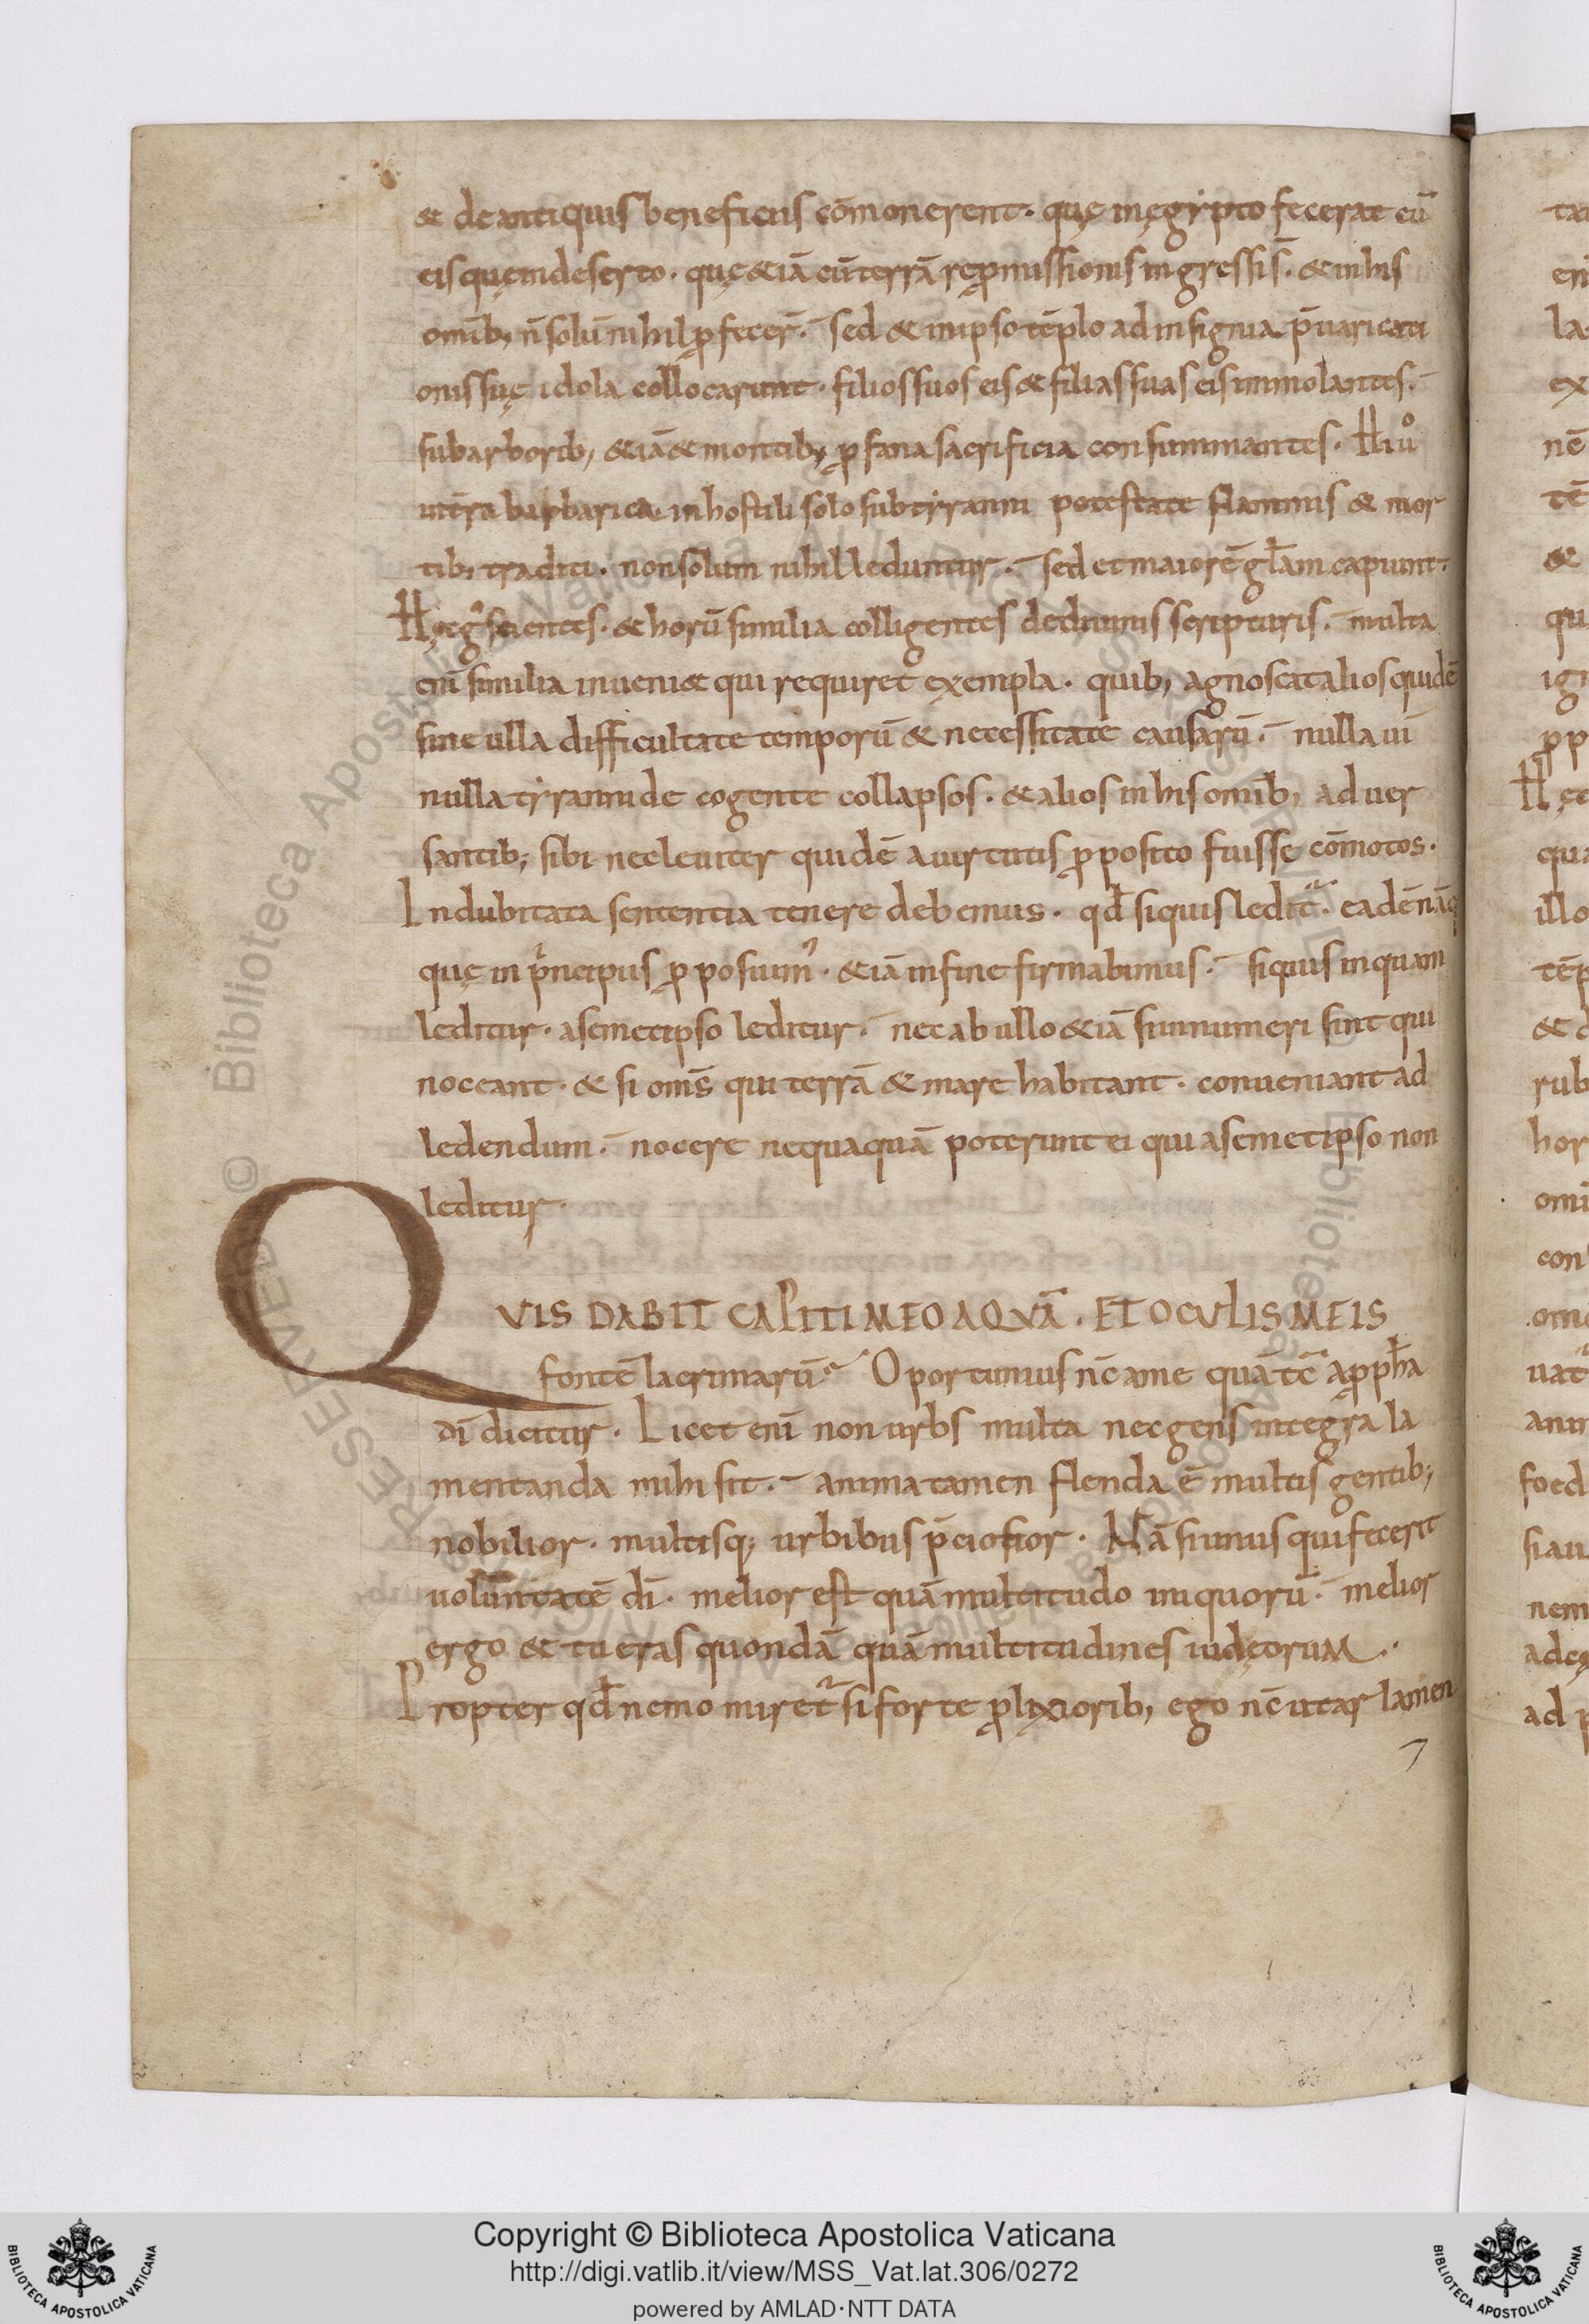 & de antiquis beneficiis cōmonerent. quę inęgypto fecerat cū
eis quę indeserto. quę &iā cū terrā repmissionis ingressis. & inhis
omib; n̄ solū nihil pfecer̄. sed & inipso tēplo ad insignia p̄uaricati
onis suę idola collocarunt. filios suos eis & filias suas eis immolantes.
subarborib; &iā & montib; pfana sacrificia consummantes. Hi uº
intēra barbarica inhostili solo sub tyranni potestate flammis & mor
tib; traditi. non solum nihil leduntur. sed et maiorē gl̄am capiunt.
Hęc gº scientes. & horū similia colligentes dediuinis scripturis. multa
eni similia inueni& qui requiret exempla. quib; agnoscat alios quidē
sine ulla difficultate temporū & necessitate causarū. nulla ui
nulla tyrannide cogente collapsos. & alios in his omib; aduer
santib; sibi necleuiter quidē a uirtutis pposito fuisse cōmotos.
Indubitata sententia tenere debemus. qd̄ siquis ledit̄. eadē nāq
quę in principiis pposuim'. &iā infine firmabimus. siquis inquam
leditur. asemetipso leditur. nec ab ullo &iā si innumeri sint qui
noceant. & si oms̄ qui terrā & mare habitant. conueniant ad
ledendum. nocere nequaquā poterunt ei qui asemetipso non
leditur.
QVIS DABIT CAPITI MEO AQVĀ. ET OCVLIS MEIS
fontē lacrimarū. Oportunius nc̄ ame quā tc̄ appha
dī dicitur. Licet eni non urbs multa nec gens integra la
mentanda mihi sit. anima tamen flenda ē multis gentib;
nobilior. multisq; urbibus p̄ciosior. Nā si unus qui fecerit
uoluntatē dī. melior est quā multitudo iniquorū. melior
ergo & tu eras quondā quā multitudines iudęorum.
Propter qd̄ nemo miret̄ si forte plixiorib; ego nc̄ utar lamen
© Biblioteca Apostolica Vaticana
Copyright © Biblioteca Apostolica Vaticana
http://digi.vatlib.it/view/MSS_Vat.lat.306/0272
powered by AMLAD·NTT DATA
BIBLIOTECA APOSTOLICA VATICANA
BIBLIOTECA APOSTOLICA VATICANA